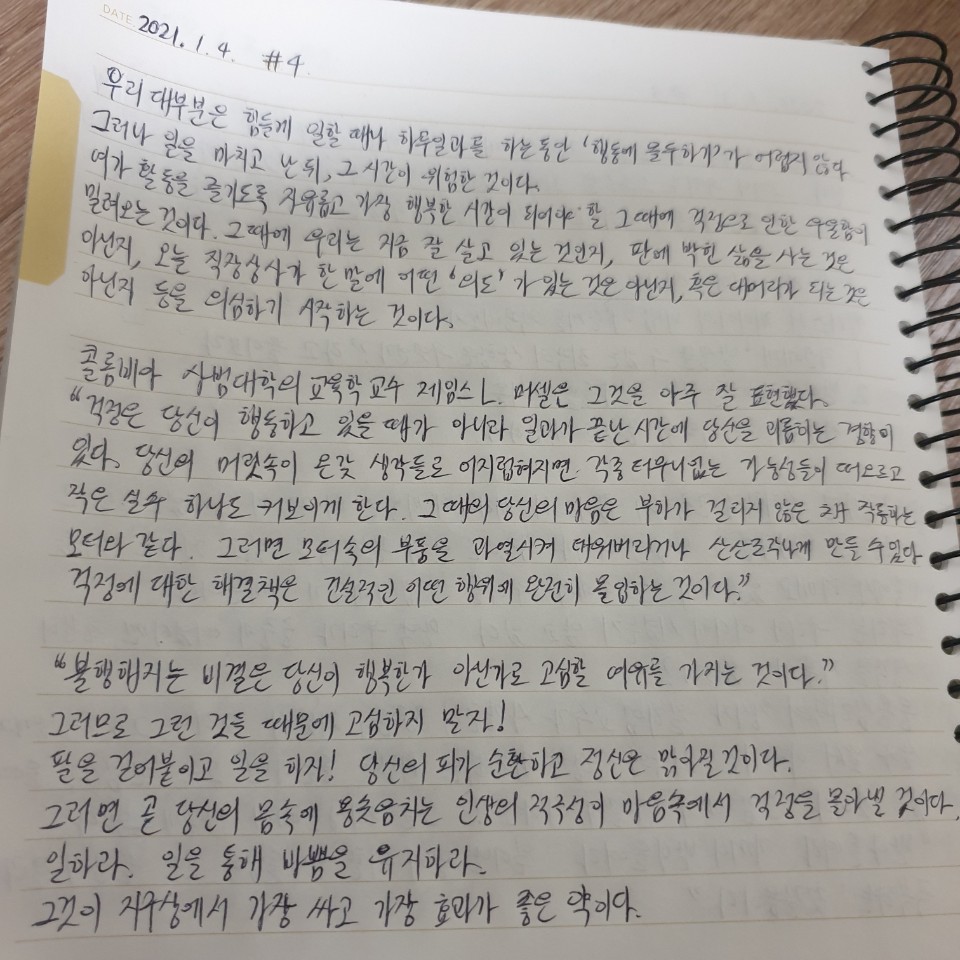 DATE 2021. 1. 4. #4.
우리 대부분은 힘들게 일할 때나 하루일과를 하는 동안 '행동에 몰두하기'가 어렵지 않다
그러나 일을 마치고 난 뒤, 그 시간이 위험한 것이다.
여가 활동을 즐기도록 자유롭고 가장 행복한 시간이 되어야 할 그때에 걱정으로 인한 우울함이
밀려오는 것이다. 그때에 우리는 지금 잘 살고 있는 것인지, 판에 박힌 삶을 사는 것은
아닌지, 오늘 직장상사가 한 말에 어떤 '의도'가 있는 것은 아닌지, 혹은 대머리가 되는 것은
아닌지 등을 의심하기 시작하는 것이다.
콜롬비아 사범대학의 교육학 교수 제임스 L. 머셀은 그것을 아주 잘 표현했다.
"걱정은 당신이 행동하고 있을 때가 아니라 일과가 끝난 시간에 당신을 괴롭히는 경향이
있다. 당신의 머릿속이 온갖 생각들로 어지럽혀지면 각종 터무니없는 가능성들이 떠오르고
작은 실수 하나도 커보이게 한다. 그 때의 당신의 마음은 부하가 걸리지 않은 채 작동하는
모터와 같다. 그러면 모터속의 부품을 과열시켜 태워버리거나 산산조각나게 만들 수 있다
걱정에 대한 해결책은 건설적인 어떤 행위에 완전히 몰입하는 것이다."
"불행해지는 비결은 당신이 행복한가 아닌가로 고심할 여유를 가지는 것이다."
그러므로 그런 것들 때문에 고심하지 말자!
팔을 걷어붙이고 일을 하자! 당신의 피가 순환하고 정신은 맑아질 것이다.
그러면 곧 당신의 몸속에 용솟음치는 인생의 적극성이 마음속에서 걱정을 몰아낼 것이다.
일하라. 일을 통해 바쁨을 유지하라.
그것이 지구상에서 가장 싸고 가장 효과가 좋은 약이다.